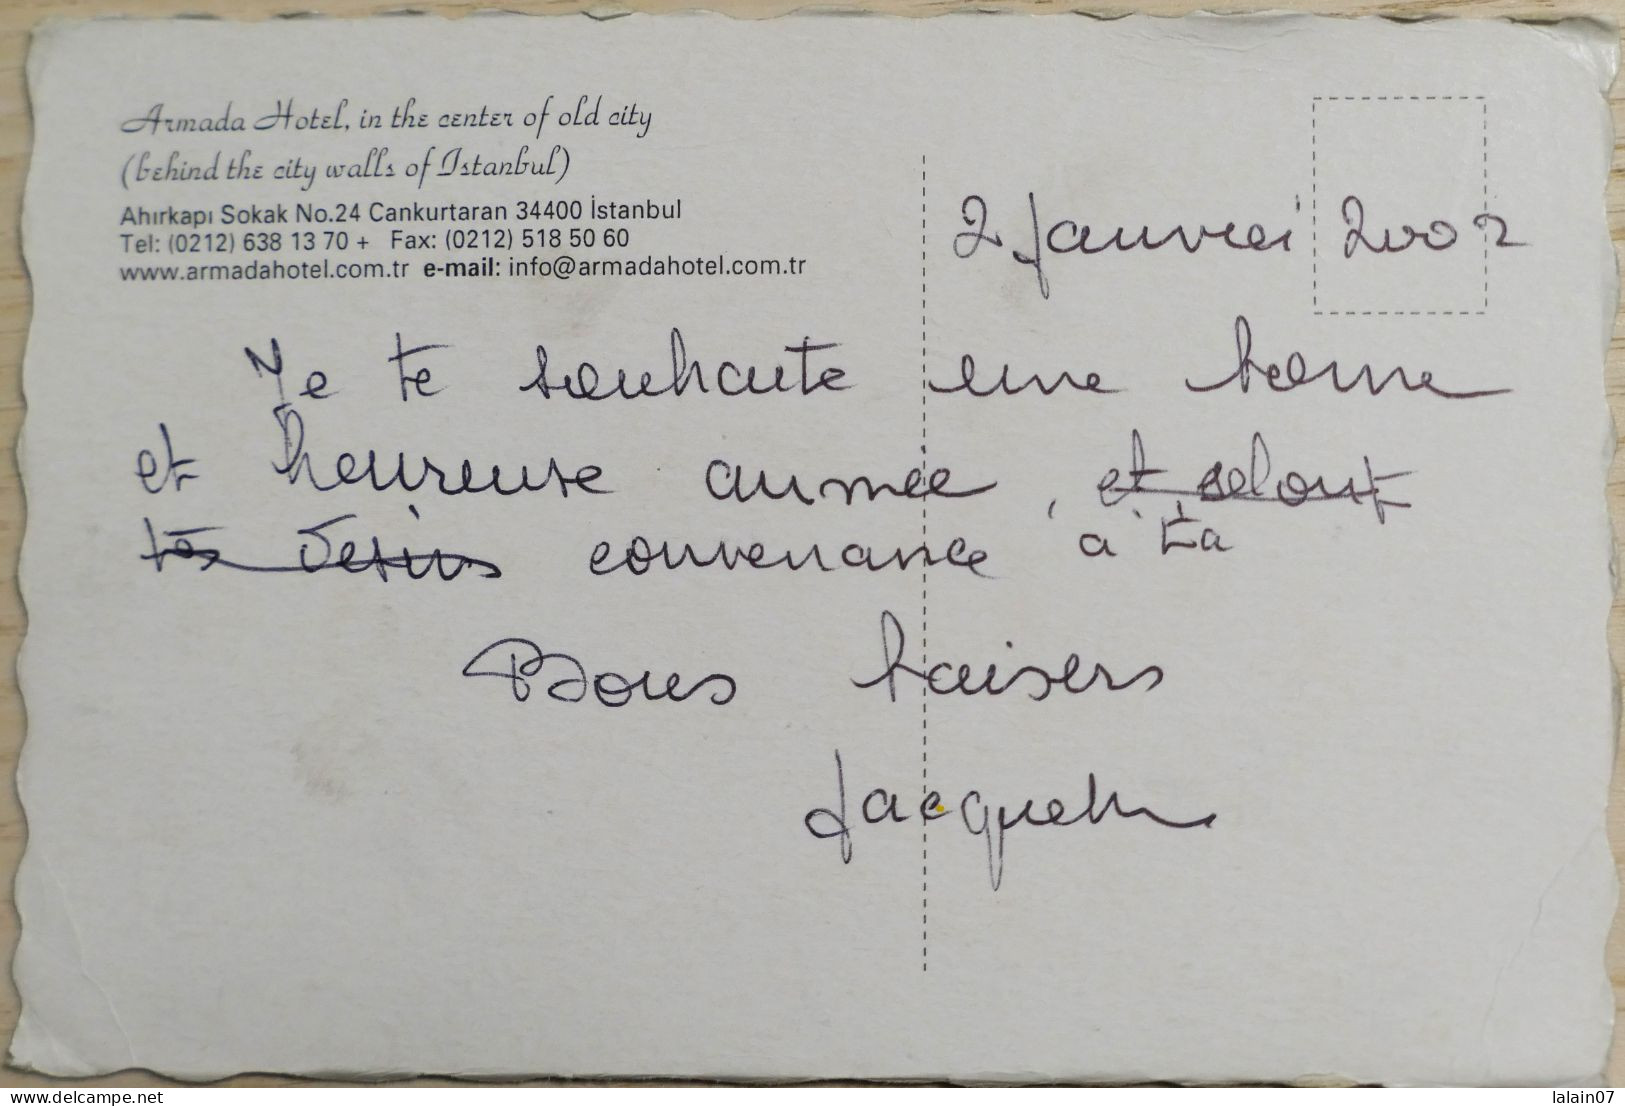 Armada Hotel, in the center of old city
(behind the city walls of Istanbul)
Ahırkapı Sokak No.24 Cankurtaran 34400 İstanbul
Tel: (0212) 638 13 70 + Fax: (0212) 518 50 60
www.armadahotel.com.tr e-mail: info@armadahotel.com.tr
2 Janvrei 2002
Je te souhaite une bonne
et heureuse année, et selont
tes desirs convenance à ta
Bons baisers
Jacquelin
delcampe.net
lalain07